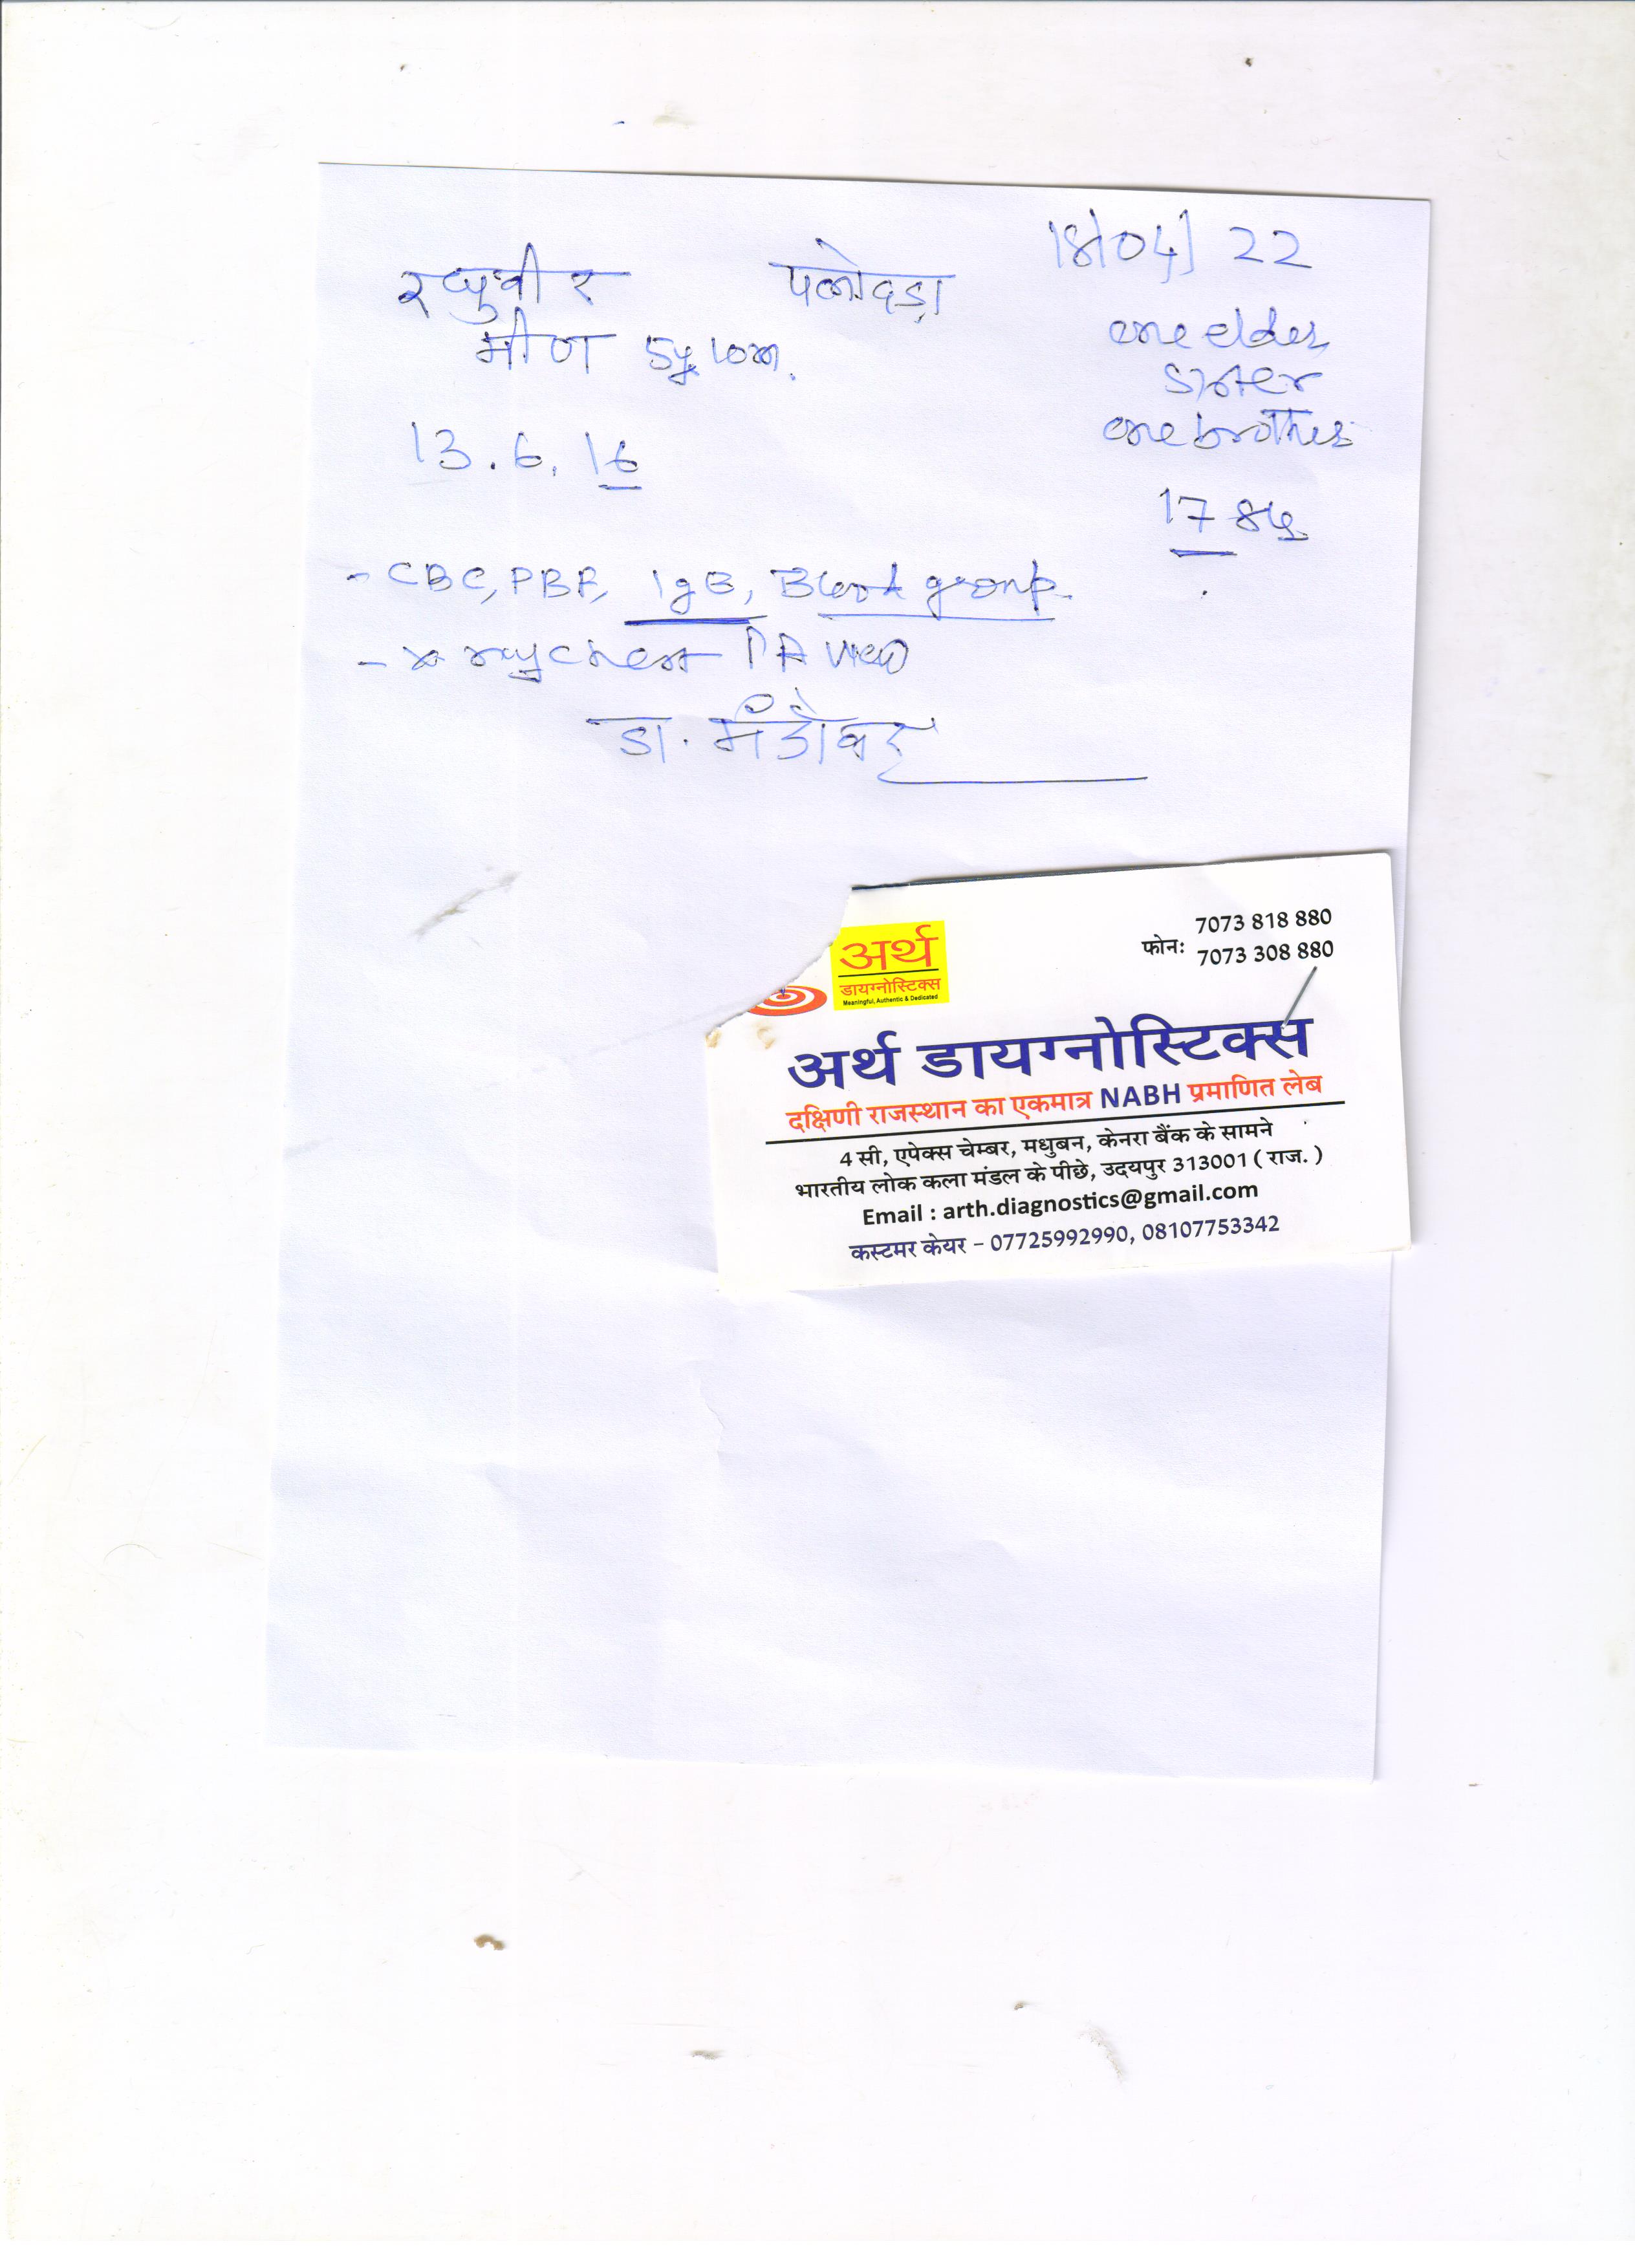 18/04/22
रघुवीर पलोदड़ा
मीणा 5y 10m.
one elder
sister
one brother
13.6.16
17
- CBC, PBF, IgE, Blood group
- X ray chest PA view
डा. मंडोवर
अर्थ
डायग्नोस्टिक्स
Meaningful, Authentic & Dedicated
फोनः 7073 818 880
7073 308 880
अर्थ डायग्नोस्टिक्स
दक्षिणी राजस्थान का एकमात्र NABH प्रमाणित लेब
4 सी, एपेक्स चेम्बर, मधुबन, केनरा बैंक के सामने
भारतीय लोक कला मंडल के पीछे, उदयपुर 313001 ( राज. )
Email : arth.diagnostics@gmail.com
कस्टमर केयर – 07725992990, 08107753342